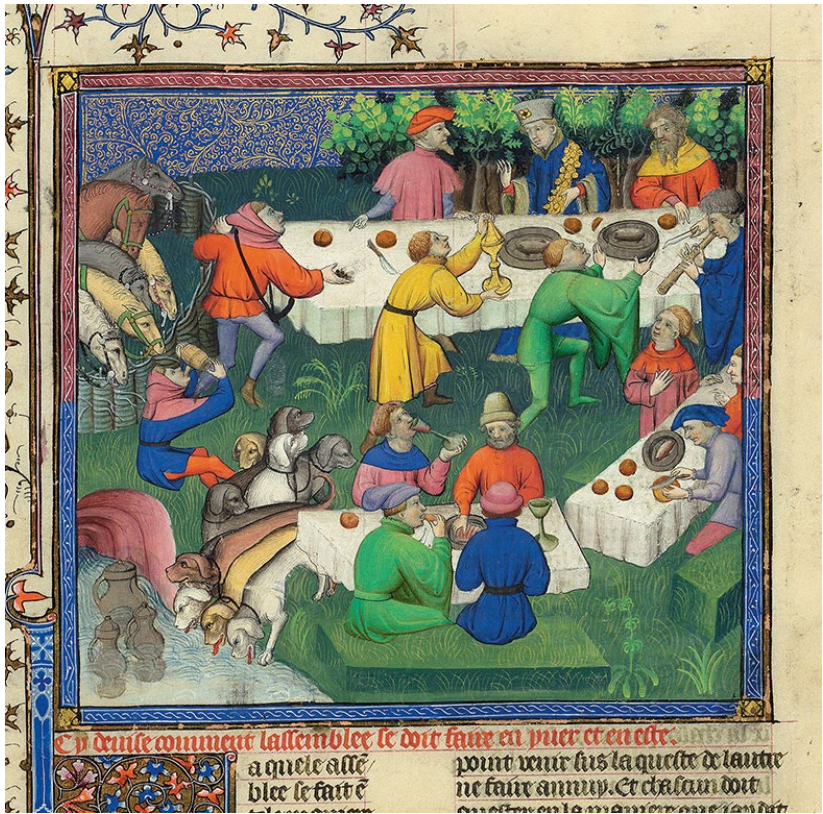 Cy deuise comment lassemblee se doit faire en yuer et en este.
a quele assē
blee se fait ē
tel
point venir sus la queste de lautre
ne faire annuy. Et chascun doit
quester en la maniere que iay dit